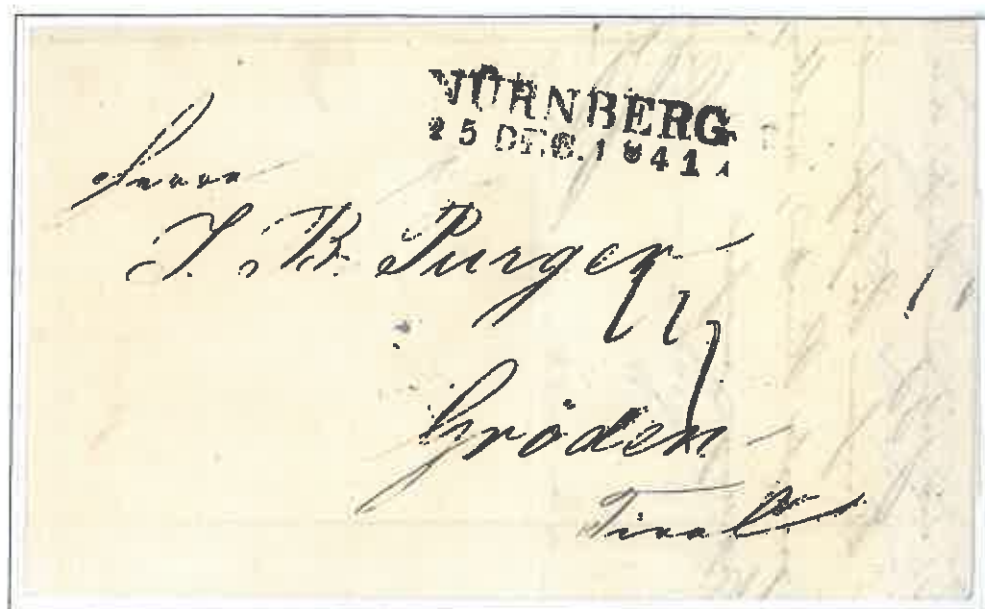 NÜRNBERG
25 DEC. 1841
Herrn
J. B. Purger
Gröden
Tirol